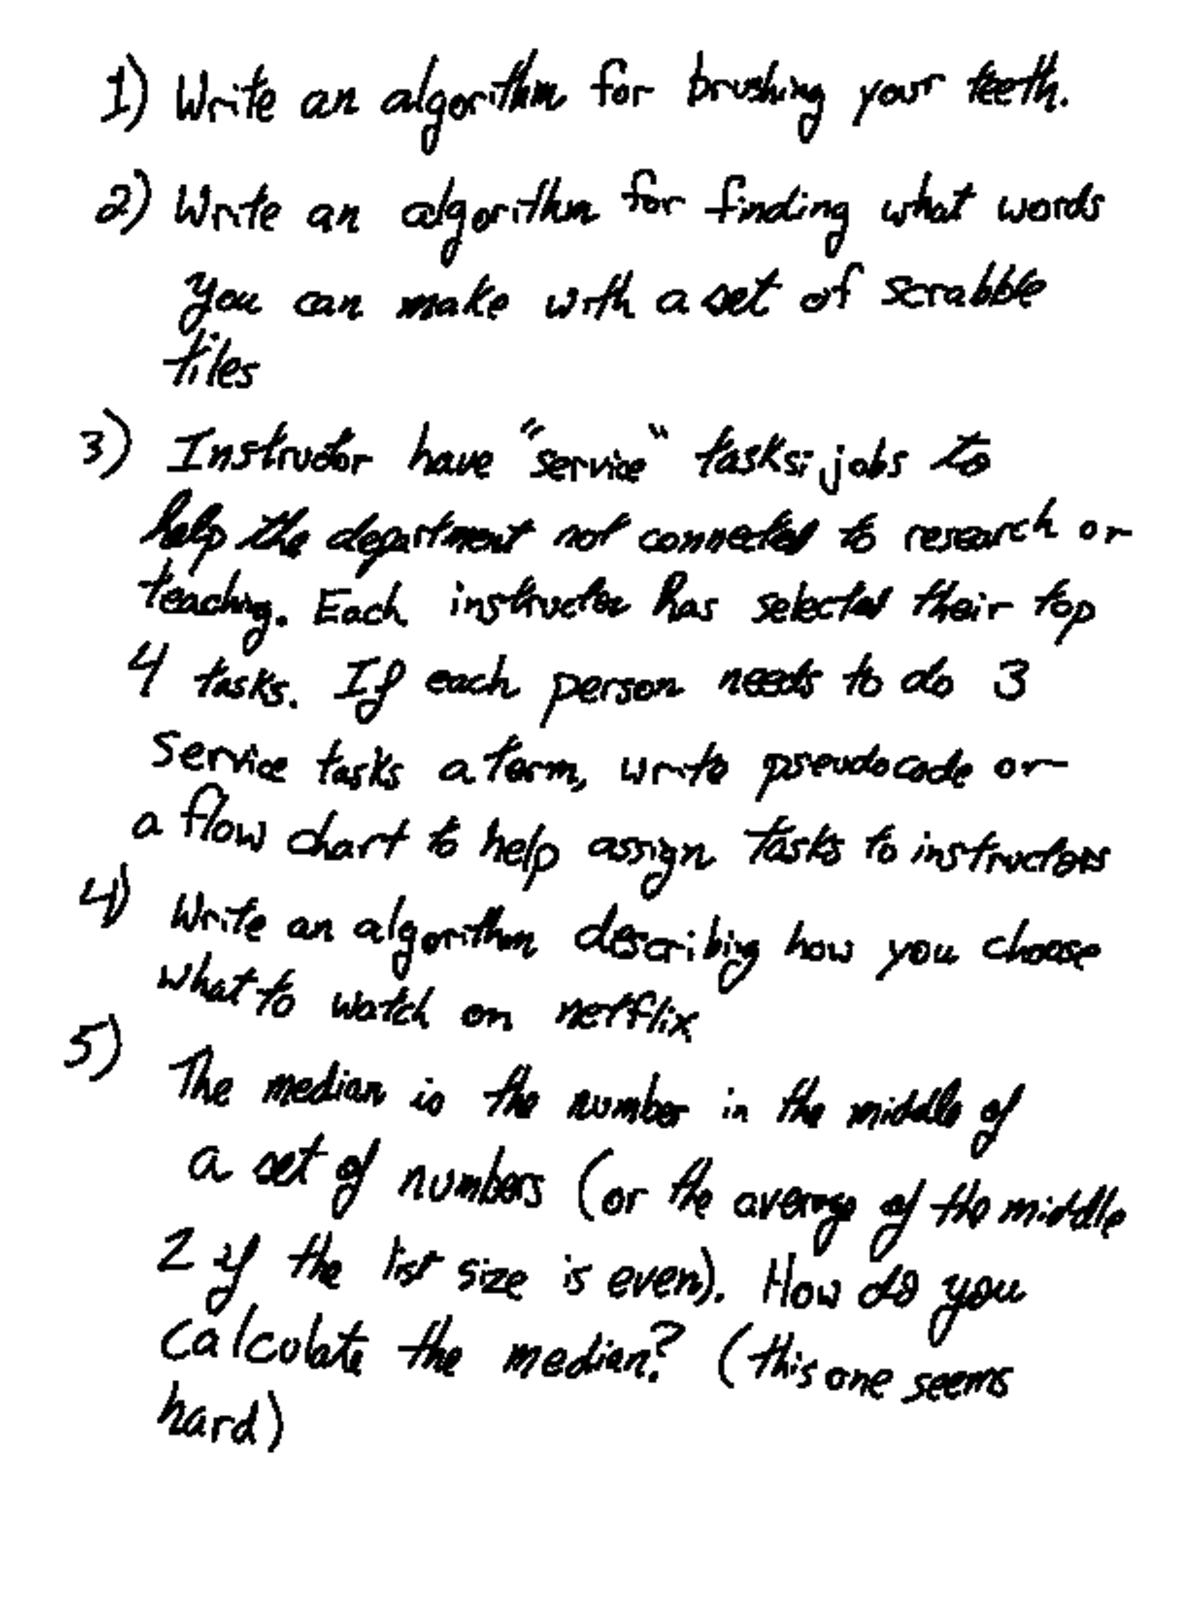 1) Write an algorithm for brushing your teeth.
2) Write an algorithm for finding what words
you can make with a set of scrabble
tiles
3) Instructor have "service" tasks: jobs to
help the department not connected to research or
teaching. Each instructor has selected their top
4 tasks. If each person needs to do 3
service tasks a term, write pseudocode or
a flow chart to help assign tasks to instructors
4) Write an algorithm describing how you choose
what to watch on netflix
5) The median is the number in the middle of
a set of numbers (or the average of the middle
2 if the list size is even). How do you
calculate the median? (this one seems
hard)